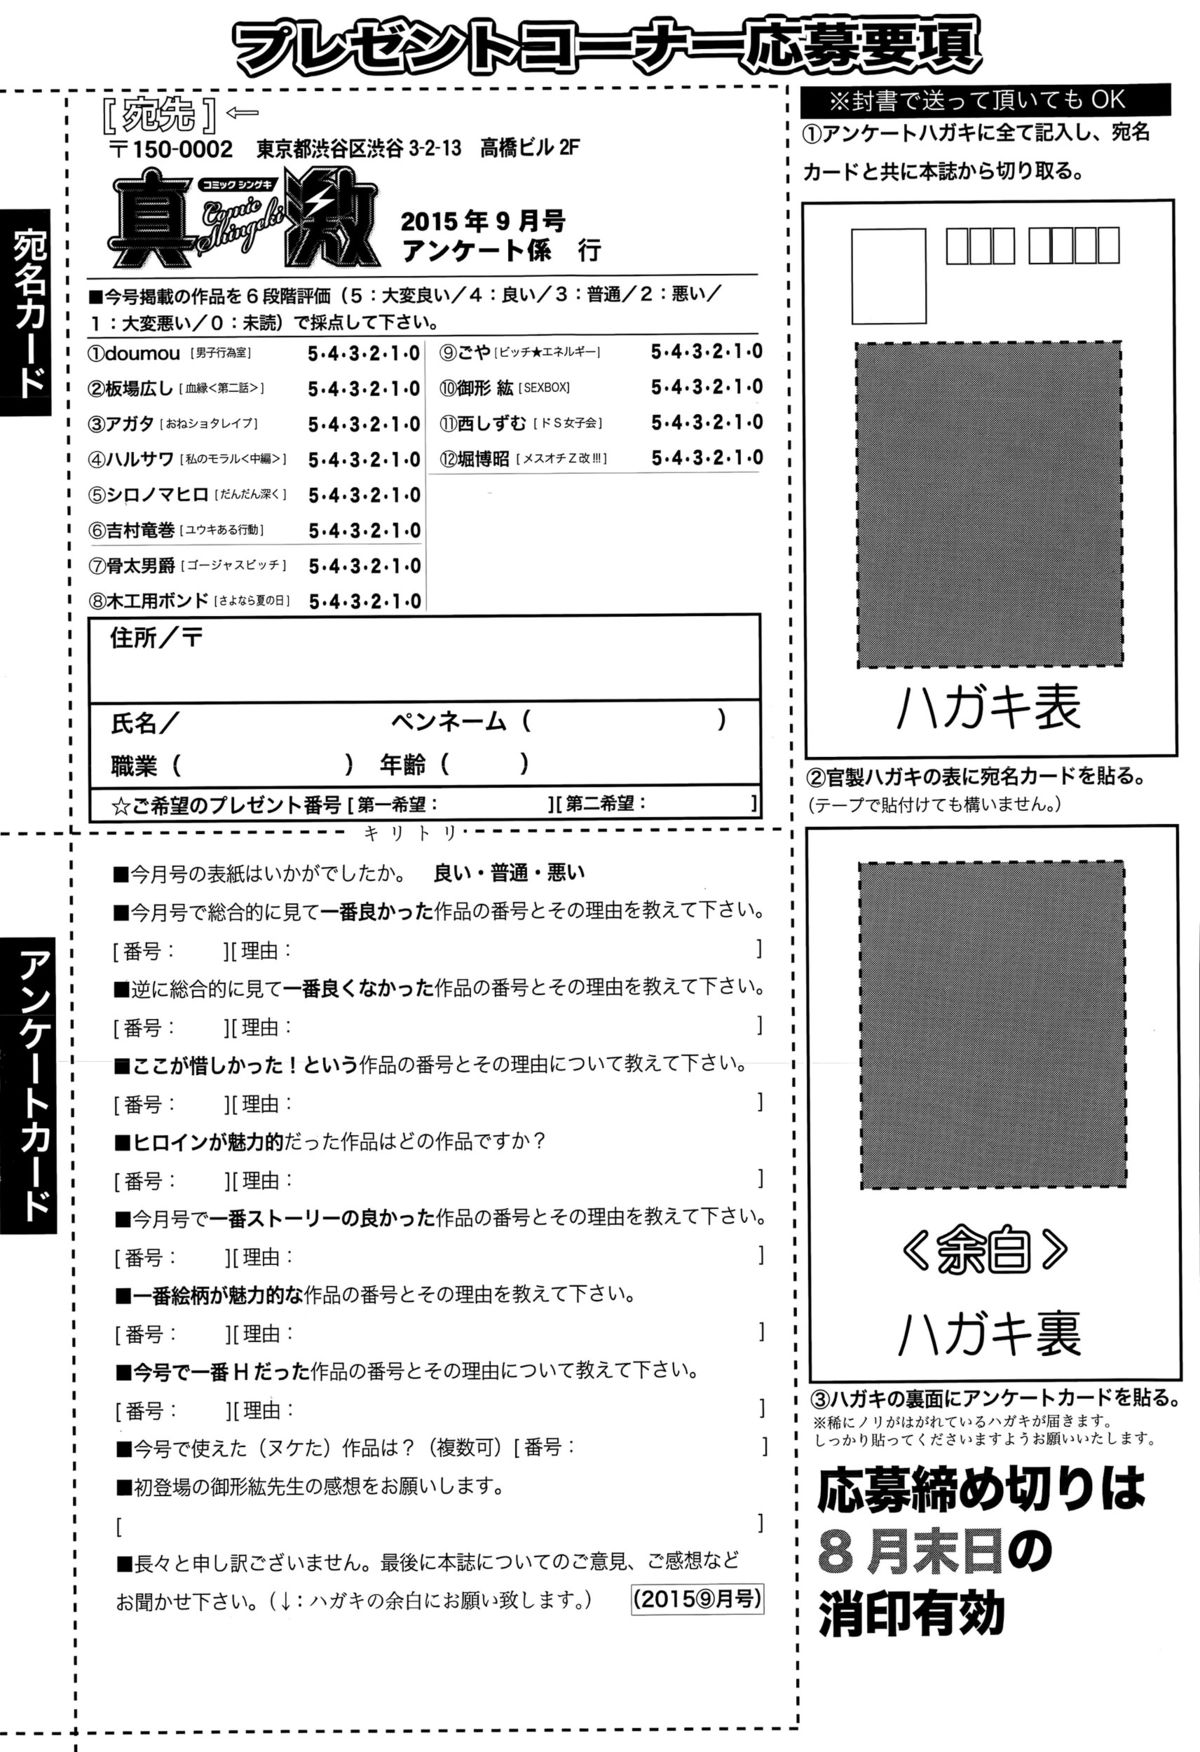 プレゼントコーナー応募要項
宛名カード
[ 宛先 ] ←
〒150-0002　東京都渋谷区渋谷 3-2-13　高橋ビル 2F
真激
コミックシンゲキ
Comic Shingeki
2015 年 9 月号
アンケート係　行
■今号掲載の作品を 6 段階評価（5：大変良い／4：良い／3：普通／2：悪い／
1：大変悪い／0：未読）で採点して下さい。
①doumou [ 男子行為室] 5・4・3・2・1・0
②板場広し [ 血縁<第二話> ] 5・4・3・2・1・0
③アガタ [ おねショタレイプ ] 5・4・3・2・1・0
④ハルサワ [ 私のモラル<中編> ] 5・4・3・2・1・0
⑤シロノマヒロ [ だんだん深く ] 5・4・3・2・1・0
⑥吉村竜巻 [ ユウキある行動] 5・4・3・2・1・0
⑦骨太男爵 [ ゴージャスビッチ ] 5・4・3・2・1・0
⑧木工用ボンド [ さよなら夏の日 ] 5・4・3・2・1・0
⑨ごや [ ビッチ★エネルギー] 5・4・3・2・1・0
⑩御形 紘 [ SEXBOX] 5・4・3・2・1・0
⑪西しずむ [ ドS女子会 ] 5・4・3・2・1・0
⑫堀博昭 [ メスオチZ改!!! ] 5・4・3・2・1・0
住所／〒
氏名／　ペンネーム（　）
職業（　）　年齢（　）
☆ご希望のプレゼント番号 [ 第一希望：　][ 第二希望：　]
キリトリ
アンケートカード
■今月号の表紙はいかがでしたか。　良い・普通・悪い
■今月号で総合的に見て一番良かった作品の番号とその理由を教えて下さい。
[ 番号：　][ 理由：　]
■逆に総合的に見て一番良くなかった作品の番号とその理由を教えて下さい。
[ 番号：　][ 理由：　]
■ここが惜しかった！という作品の番号とその理由について教えて下さい。
[ 番号：　][ 理由：　]
■ヒロインが魅力的だった作品はどの作品ですか？
[ 番号：　][ 理由：　]
■今月号で一番ストーリーの良かった作品の番号とその理由を教えて下さい。
[ 番号：　][ 理由：　]
■一番絵柄が魅力的な作品の番号とその理由を教えて下さい。
[ 番号：　][ 理由：　]
■今号で一番 H だった作品の番号とその理由について教えて下さい。
[ 番号：　][ 理由：　]
■今号で使えた（ヌケた）作品は？（複数可）[ 番号：　]
■初登場の御形紘先生の感想をお願いします。
[　]
■長々と申し訳ございません。最後に本誌についてのご意見、ご感想など
お聞かせ下さい。（↓：ハガキの余白にお願い致します。）　(2015⑨月号)
※封書で送って頂いても OK
①アンケートハガキに全て記入し、宛名
カードと共に本誌から切り取る。
ハガキ表
②官製ハガキの表に宛名カードを貼る。
（テープで貼付けても構いません。）
＜余白＞
ハガキ裏
③ハガキの裏面にアンケートカードを貼る。
※稀にノリがはがれているハガキが届きます。
しっかり貼ってくださいますようお願いいたします。
応募締め切りは
8 月末日の
消印有効